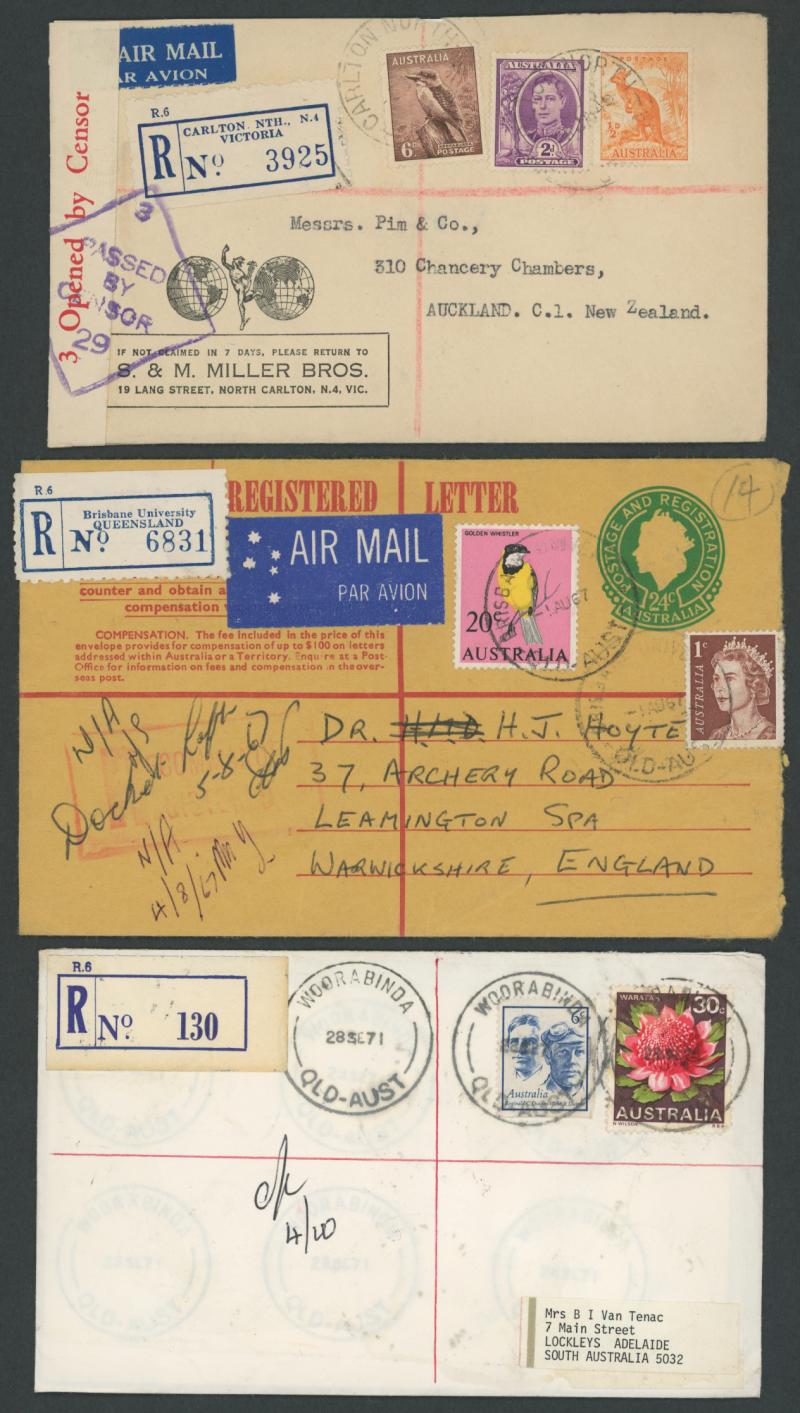 AIR MAIL
PAR AVION
R.6
CARLTON NTH., N.4
VICTORIA
R No 3925
CARLTON NORTH
NORTH
AUSTRALIA
6D
KOOKABURRA
POSTAGE
AUSTRALIA
2D
POSTAGE
POSTAGE
½D
AUSTRALIA
3 Opened by Censor
3
PASSED
BY
CENSOR
29
Messrs. Pim & Co.,
310 Chancery Chambers,
AUCKLAND. C.1. New Zealand.
IF NOT CLAIMED IN 7 DAYS, PLEASE RETURN TO
S. & M. MILLER BROS.
19 LANG STREET, NORTH CARLTON, N.4, VIC.
REGISTERED LETTER
14
R.6
Brisbane University
QUEENSLAND
R No 6831
AIR MAIL
PAR AVION
GOLDEN WHISTLER
20c
AUSTRALIA
1AU67
POSTAGE AND REGISTRATION
24c
AUSTRALIA
counter and obtain a
compensation
COMPENSATION. The fee included in the price of this
envelope provides for compensation of up to $100 on letters
addressed within Australia or a Territory. Enquire at a Post-
Office for information on fees and compensation in the over-
seas post.
1c
AUSTRALIA
-1AU67
QLD-AUST
N/A
Docket Left
5-8-67
N/A
4/8/67
DR. H.J. HOYTE
37, ARCHERY ROAD
LEAMINGTON SPA
WARWICKSHIRE, ENGLAND
R.6
R No 130
WOORABINDA
28SE71
QLD-AUST
WOORABINDA
28SE71
QLD-AUST
6c
Australia
WARATAH
30c
AUSTRALIA
R WILSON
RBA
4/10
WOORABINDA
28SE71
QLD-AUST
WOORABINDA
28SE71
QLD-AUST
Mrs B I Van Tenac
7 Main Street
LOCKLEYS ADELAIDE
SOUTH AUSTRALIA 5032